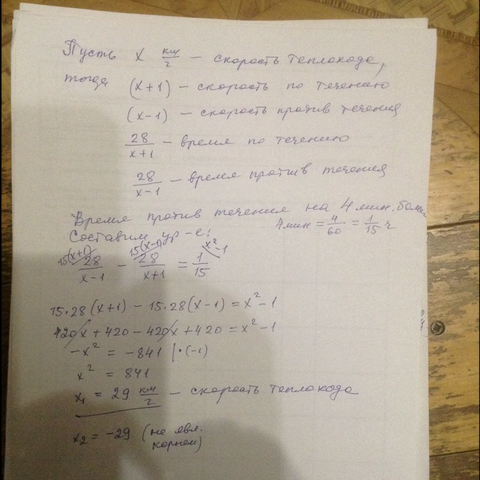 Пусть x км/ч — скорость теплохода,
тогда (x+1) — скорость по течению
(x-1) — скорость против течения
28/(x+1) — время по течению
28/(x-1) — время против течения
Время против течения на 4 мин. больше
Составим ур-е: 4 мин = 4/60 = 1/15 ч
15(x+1) 28/(x-1) - 15(x-1) 28/(x+1) = 1/15 x²-1
15·28(x+1) - 15·28(x-1) = x²-1
420x + 420 - 420x + 420 = x²-1
-x² = -841 | ·(-1)
x² = 841
x₁ = 29 км/ч — скорость теплохода
x₂ = -29 (не явл. корнем)